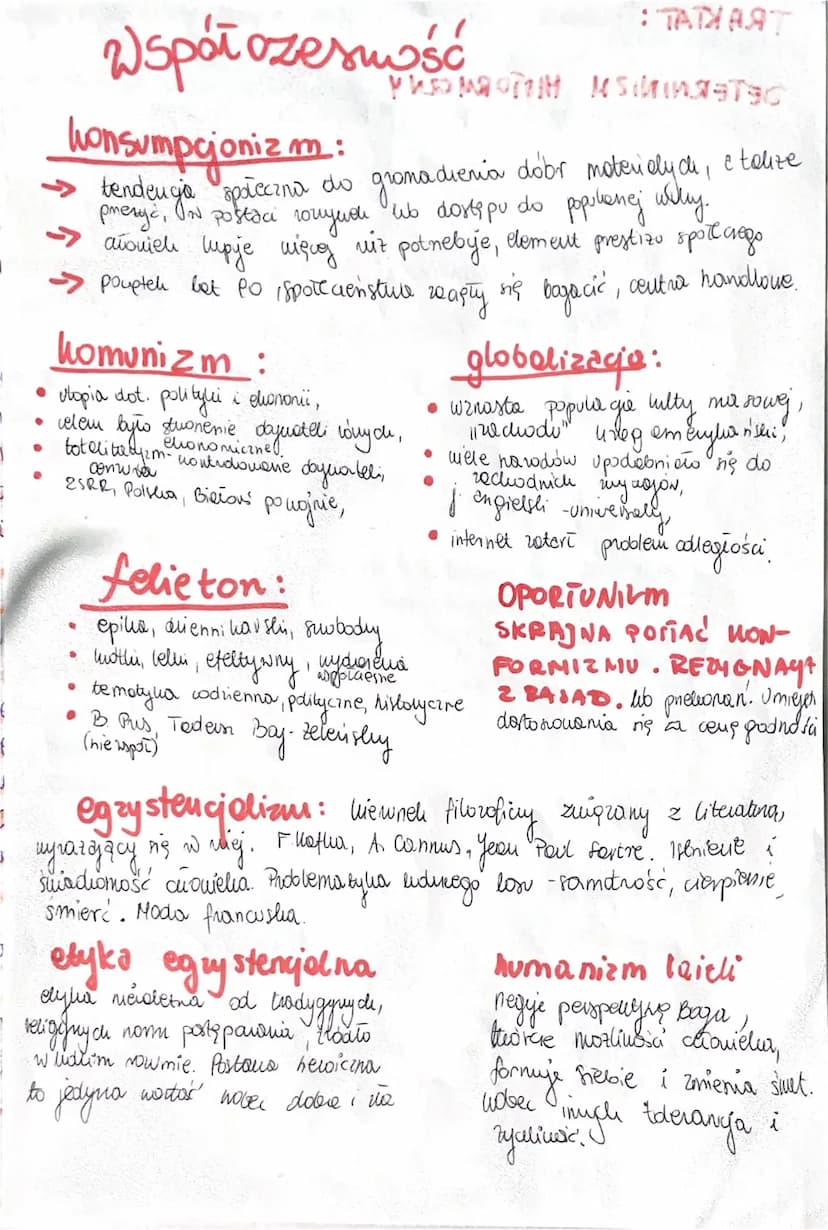 TRAKTAT:
Współczesność
DETERMINIZM HISTORYCZNY
konsumpcjonizm:
→ tendencja społeczna do gromadzenia dóbr materialnych, a także
przeżyć, w postaci rozrywek lub dostępu do popularnej kultury.
→ człowiek kupuje więcej niż potrzebuje, element prestiżu społecznego
→ początek lat 60, społeczeństwa zaczęły się bogacić, centra handlowe.
komunizm:
• utopia dot. polityki i ekonomii,
• celem było stworzenie obywateli równych,
ekonomicznej
• totalitaryzm - kontrolowane obywateli,
cenzura
• ZSRR, Polska, Białoruś powojnie,
globalizacja:
• wzrasta popularyzacja kultury masowej,
"zachodu" kręg amerykański,
• wiele narodów upodobniało się do
zachodnich
• j. angielski - uniwersalny,
• internet zatarł problem odległości.
felieton:
• epika, dziennikarski, swobodny
• krótki, lekki, efektywny, wydarzenia
współczesne
• tematyka codzienna, polityczne, historyczne
• B. Prus, Tadeusz Boy-Żeleński
(nie współ)
OPORTUNIZM
SKRAJNA POSTAĆ KON-
FORMIZMU. REZYGNACJA
Z ZASAD. lub przekonań. Umiejęt
dostosowania się za cenę godności
egzystencjalizm: kierunek filozoficzny związany z literaturą,
wyrażający się w niej. F. Kafka, A. Camus, Jean Paul Sartre. Istnienie i
świadomość człowieka. Problematyka ludzkiego losu - samotność, cierpienie,
śmierć. Moda francuska.
etyka egzystencjalna
etyka niezależna od tradycyjnych,
religijnych norm postępowania, źródło
w ludzkim rozumie. Postawa heroiczna
to jedyna wartość wobec dobra i zła
humanizm laicki
neguje perspektywę Boga,
twórcze możliwości człowieka,
formuje siebie i zmienia świat.
Wobec innych tolerancja i
życzliwość.